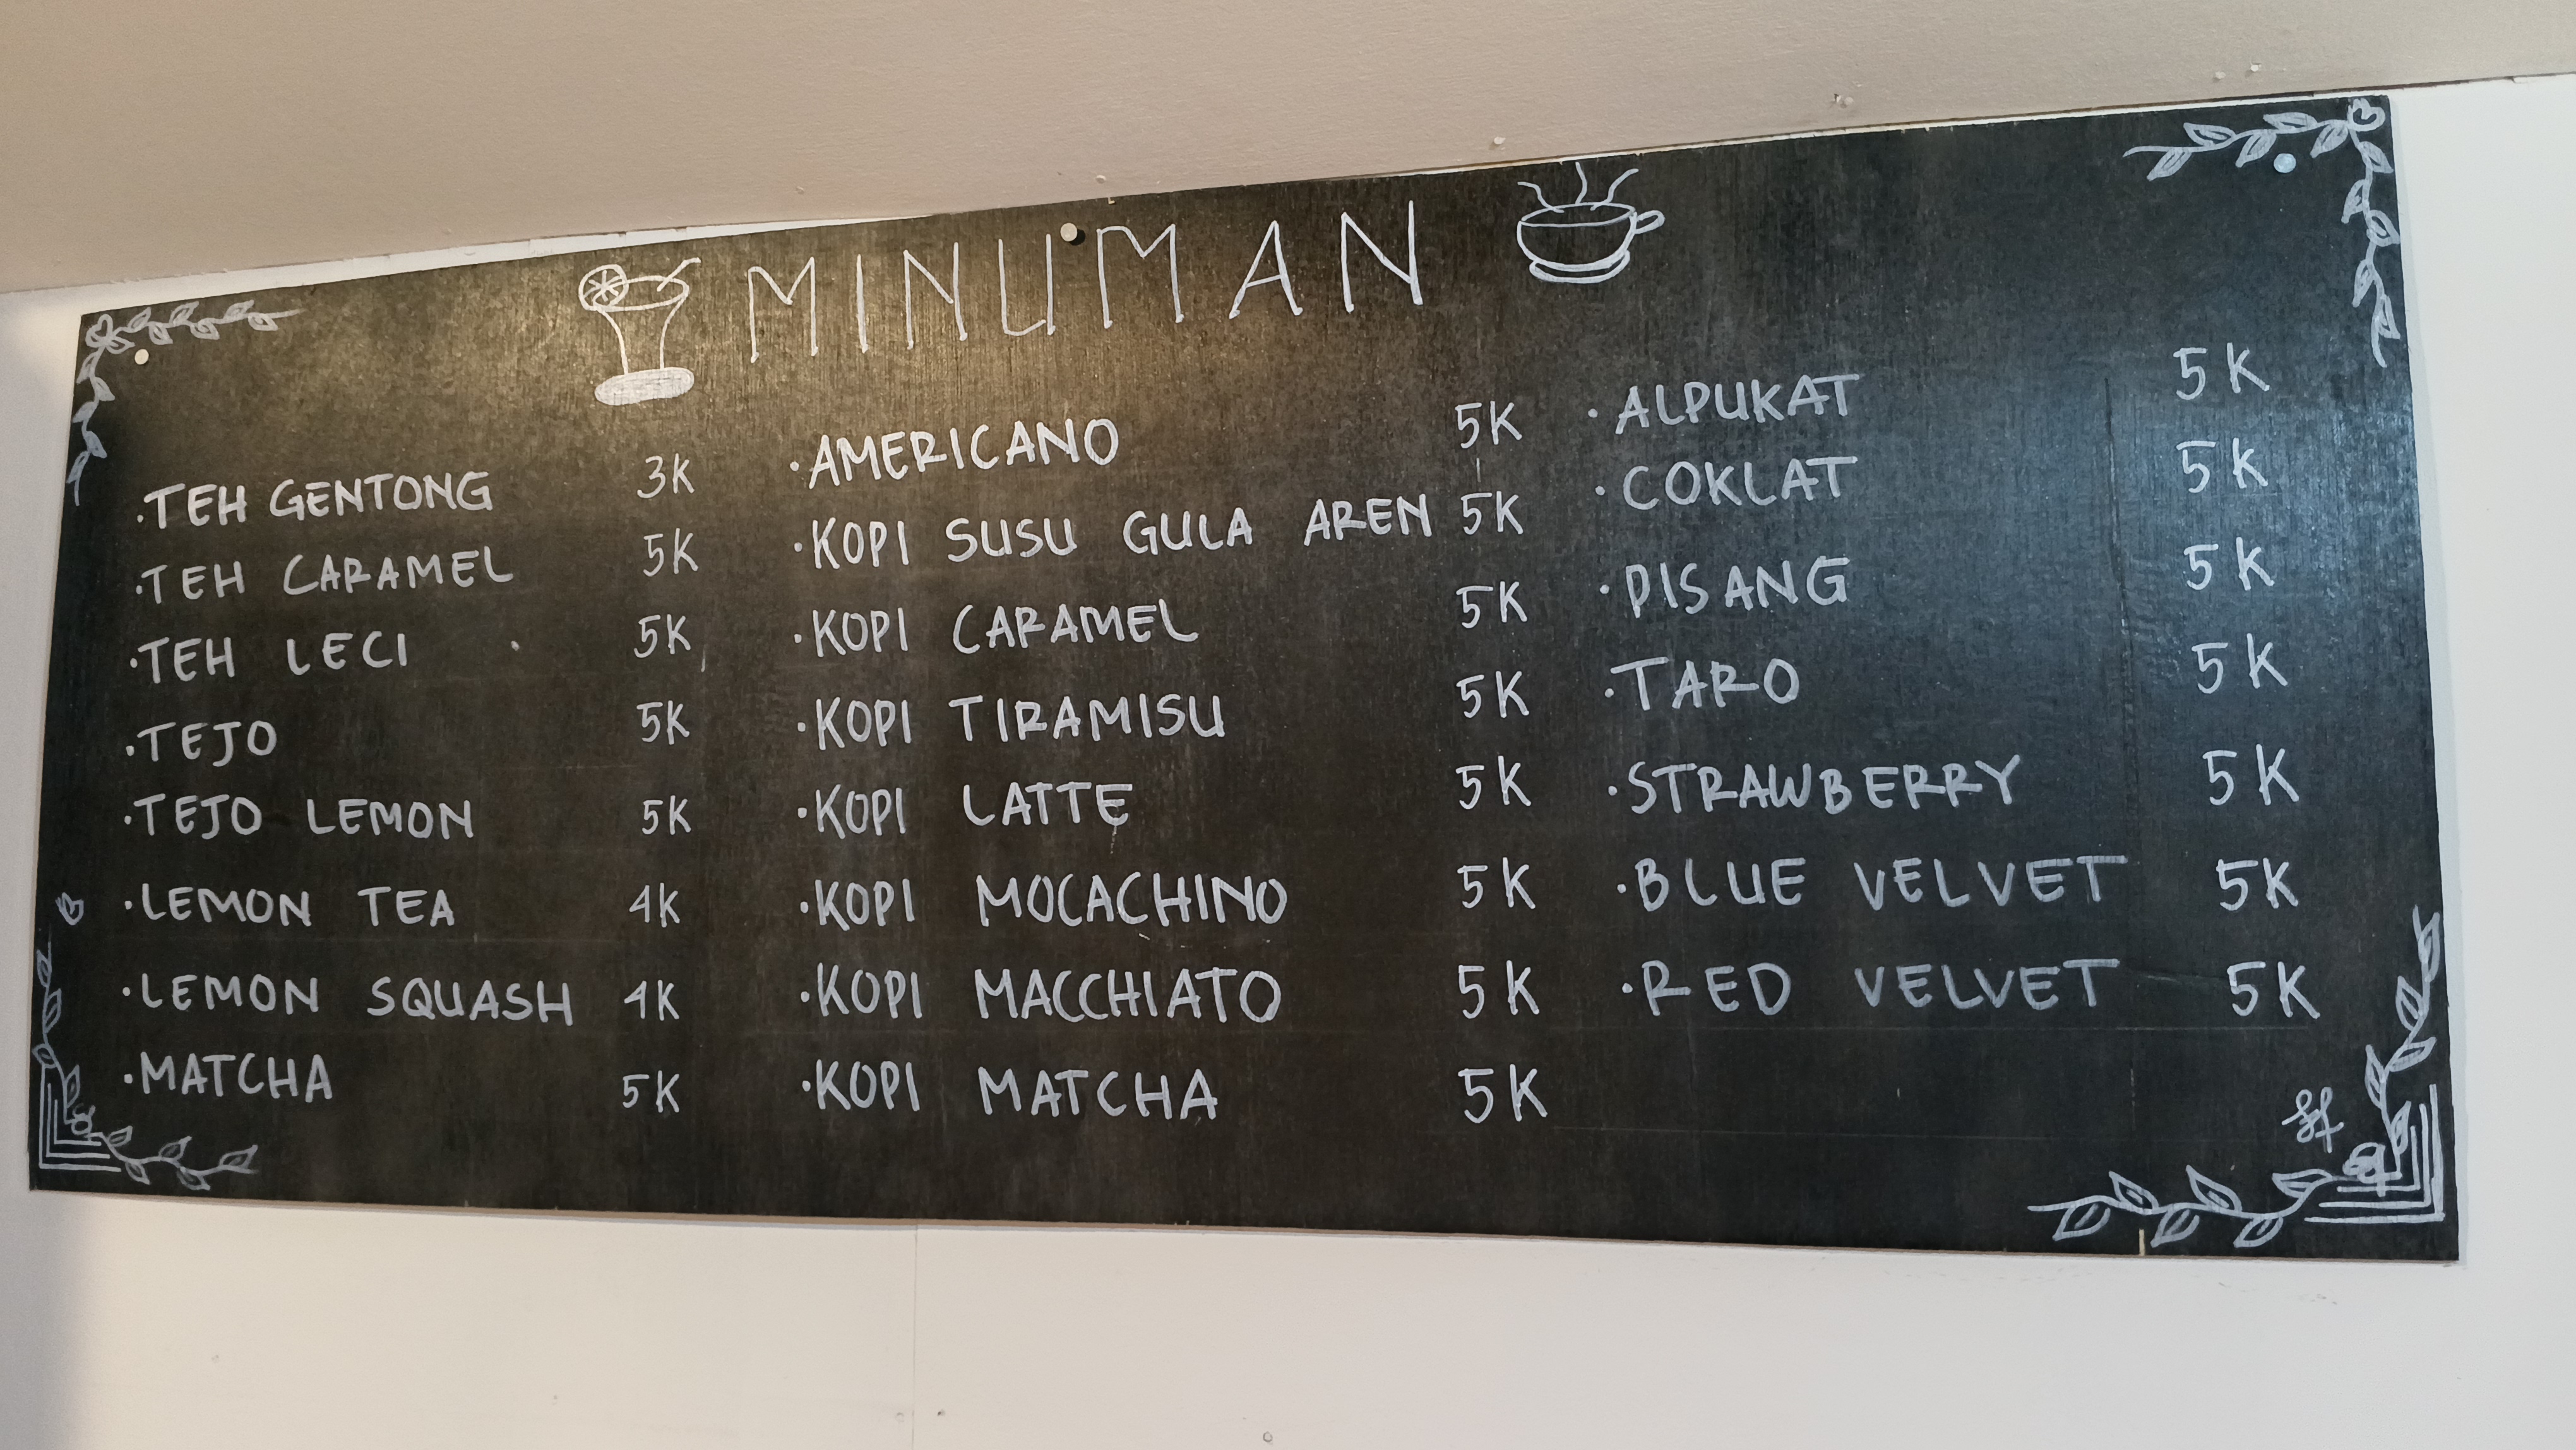 MINUMAN
·TEH GENTONG 3K
·TEH CARAMEL 5K
·TEH LECI 5K
·TEJO 5K
·TEJO LEMON 5K
·LEMON TEA 4K
·LEMON SQUASH 4K
·MATCHA 5K
·AMERICANO 5K
·KOPI SUSU GULA AREN 5K
·KOPI CARAMEL 5K
·KOPI TIRAMISU 5K
·KOPI LATTE 5K
·KOPI MOCACHINO 5K
·KOPI MACCHIATO 5K
·KOPI MATCHA 5K
·ALPUKAT 5K
·COKLAT 5K
·PISANG 5K
·TARO 5K
·STRAWBERRY 5K
·BLUE VELVET 5K
·RED VELVET 5K